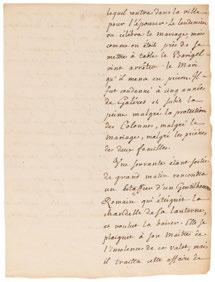 lequel rentra dans la ville
pour l'épouser. le lendemain
on célébra le mariage mais
comme on étoit près de se
mettre à table le Barigel
vint arrêter le Mari
qu'il mena en prison. Il
fut condamné à cinq années
de Galères et subit la
peine malgré la protection
des Colonnes, malgré le
mariage, malgré les prières
des deux familles.
Une servante étant sortie
de grand matin rencontra
un estaffier d'un Gentilhomme
Romain qui éteignit la
chandelle de sa lanterne
et voulut la baiser. Elle se
plaignit à son Maître de
l'insolence de ce valet, mais
il traita cette affaire de